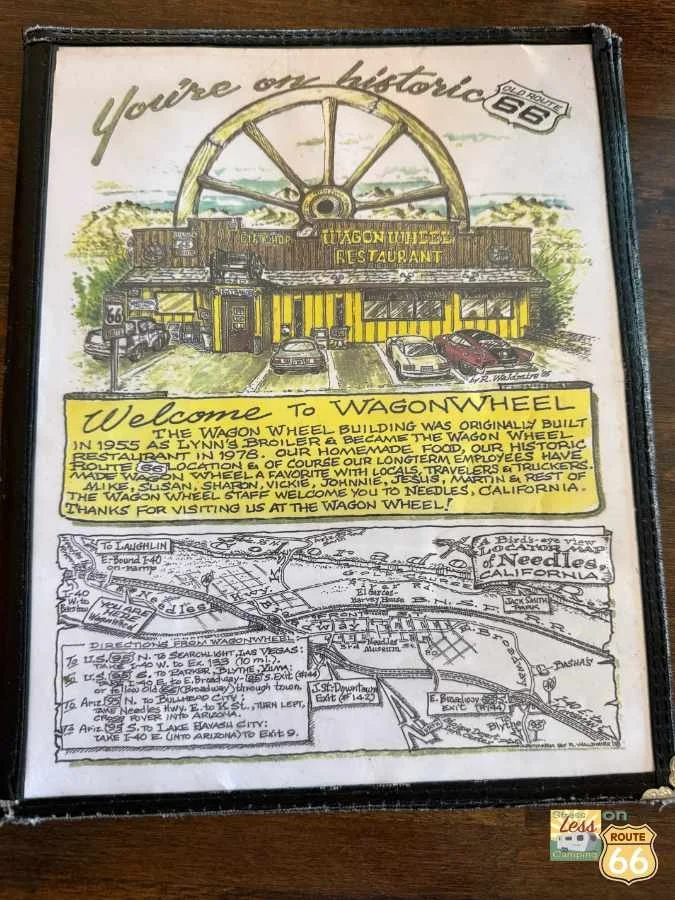 You're on historic
OLD ROUTE
66
GIFT SHOP
WAGON WHEEL
RESTAURANT
66
by R. Waldmire
Welcome To WAGONWHEEL
THE WAGON WHEEL BUILDING WAS ORIGINALLY BUILT
IN 1955 AS LYNN'S BROILER & BECAME THE WAGON WHEEL
RESTAURANT IN 1978. OUR HOMEMADE FOOD, OUR HISTORIC
ROUTE 66 LOCATION & OF COURSE OUR LONGTERM EMPLOYEES HAVE
MADE WAGON WHEEL A FAVORITE WITH LOCALS, TRAVELERS & TRUCKERS.
MIKE, SUSAN, SHARON, VICKIE, JOHNNIE, JESUS, MARTIN & REST OF
THE WAGON WHEEL STAFF WELCOME YOU TO NEEDLES, CALIFORNIA.
THANKS FOR VISITING US AT THE WAGON WHEEL!
A Bird's-eye view
LOCATOR MAP
of Needles,
CALIFORNIA
TO LAUGHLIN
E-Bound I-40
on-ramp
I-40
W. to
Barstow
YOU'RE
HERE
Wagon Wheel
Needles
HWY.
River
El Garces
Harvey House
B.N.S.F. R.R.
JACK SMITH
PARK
Needles
Museum
3rd
E. Broadway
BASHAS'
I-40
J. St.-Downtown
Exit (#142)
E. Broadway-95 S.
Exit (#144)
Blythe
95
DIRECTIONS FROM WAGONWHEEL:
To U.S. 95 N. TO SEARCHLIGHT, LAS VEGAS:
TAKE I-40 W. to Ex. 133 (10 mi.).
To U.S. 95 S. TO PARKER, BLYTHE, YUMA:
TAKE I-40 E. to E. Broadway-95 S. Exit (#144)
or follow Old 66 (Broadway) through town.
To Ariz 95 N. TO BULLHEAD CITY:
TAKE Needles Hwy. E. to K St., TURN LEFT,
CROSS RIVER INTO ARIZONA.
To Ariz 95 S. TO LAKE HAVASU CITY:
TAKE I-40 E. (INTO ARIZONA) TO EXIT 9.
Stress
Less
Camping
on
ROUTE
66